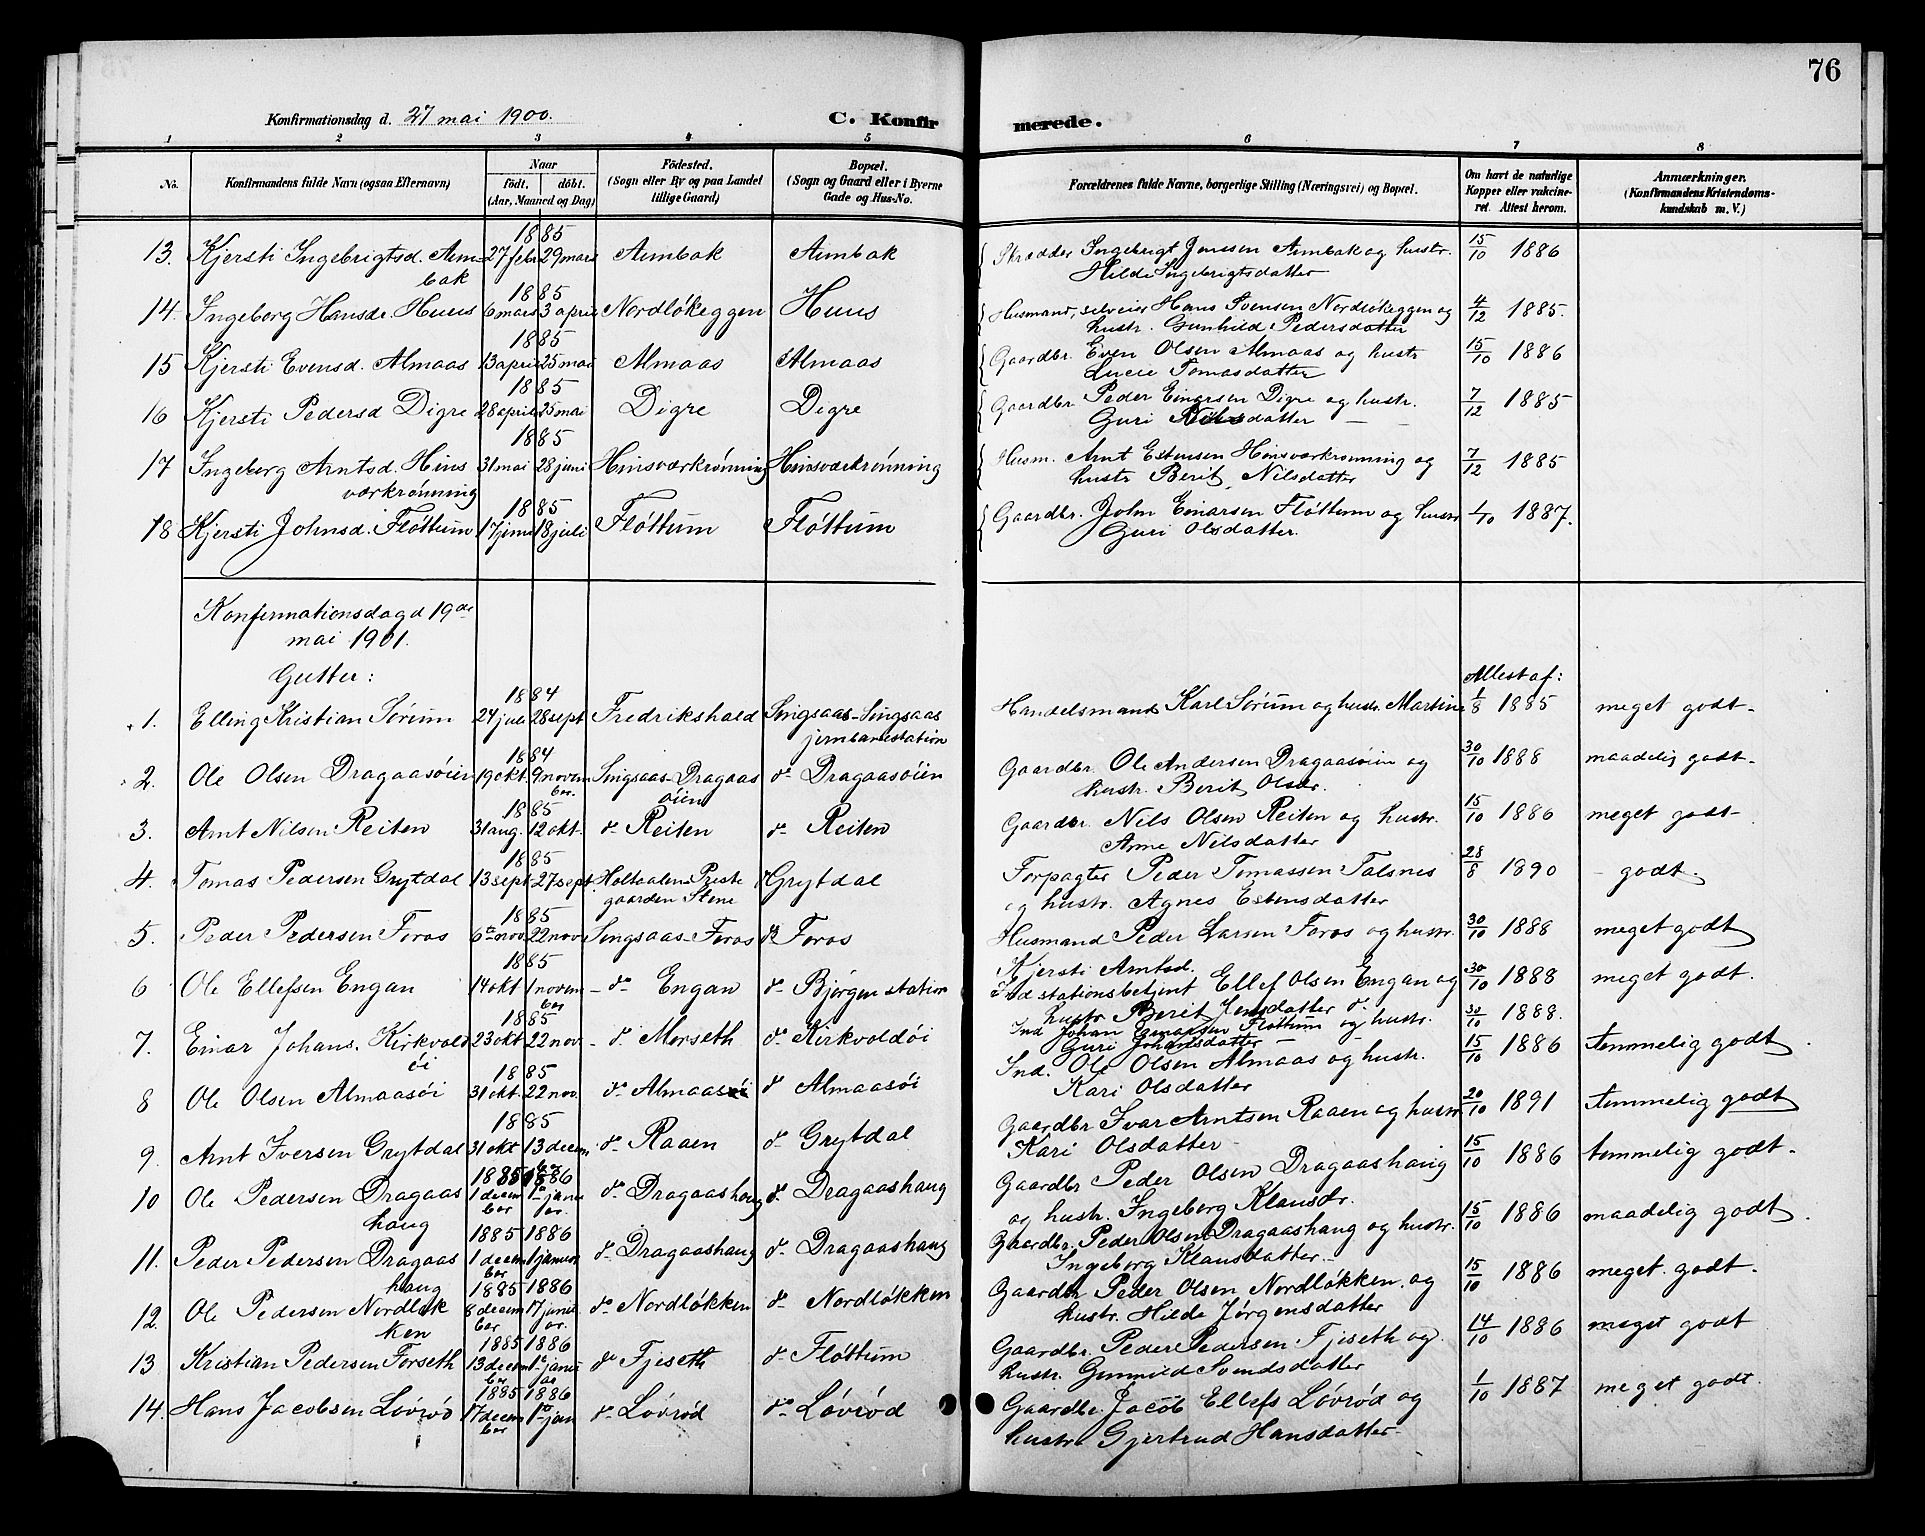 76
Konfirmationsdag d. 27 mai 1900.
C. Konfirmerede.
1 2 3 4 5 6 7 8
No.
Konfirmandens fulde Navn (ogsaa Efternavn)
Naar
födt. döbt.
(Aar, Maaned og Dag)
Födested.
(Sogn eller By og paa Landet tillige Gaard)
Bopæl.
(Sogn og Gaard eller i Byerne Gade og Hus-No.
Forældrenes fulde Navne, borgerlige Stilling (Næringsvei) og Bopæl.
Om havt de naturlige Kopper eller vakcineret. Attest herom.
Anmærkninger.
(Konfirmandens Kristendomskundskab m. V.)
1885
13. Kjersti Ingebrigtsd. Aunbak 27 febr 29 mars Aunbak Aunbak Skrædder Ingebrigt Jensen Aunbak og hustr. 15/10 1886
Hilde Ingebrigtsdatter
1885
14. Ingeborg Hansd. Huus 6 mars 3 april Nordløkeggen Huus Husmand, selveier Hans Svensen Nordløkeggen og 4/12 1885.
hustr. Gunhild Pedersdatter
1885
15 Kjersti Evensd. Almaas 13 april 25 mai Almaas Almaas Gaardbr. Even Olsen Almaas og hustr 15/10 1886
Lucie Tomasdatter
1885
16 Kjersti Pedersd Digre 28 april 25 mai Digre Digre Gaardbr Peder Einarsen Digre og hustr. 7/12 1885
Guri Nilsdatter
1885
17 Ingeborg Arntsd. Hinsværkrønning 31 mai 28 juni Hinsværkrønning Hinsværkrønning Husm. Arnt Estensen Hinsværkrønning og 7/12 1885
hustr Berit Nilsdatter
1885
18 Kjersti Johnsd. Fløttum 17 juni 18 juli Fløttum Fløttum Gaardbr. John Einarsen Fløttum og hustr 1/10 1887.
Guri Olsdatter.
Konfirmationsdag d 19de
mai 1901.
Gutter:
Attest af:
1884
1. Elling Kristian Sørum 24 juli 28 sept Fredrikshald Singsaas-Singsaas jernbanestation Handelsmand Karl Sørum og hustr. Martine 1/8 1885 meget godt
1884
2. Ole Olsen Dragaasøien 19 okt. 9 november. Singsaas-Dragaasøien do Dragaasøien Gaardbr. Ole Andersen Dragaasøien og 30/10 1888 maadelig godt
hustr. Berit Olsdr.
1885
3. Arnt Nilsen Reiten 31 aug. 12 okt. do Reiten do Reiten Gaardbr. Nils Olsen Reiten og hustr. 15/10 1886 meget godt
Arne Nilsdatter
1885
4. Tomas Pedersen Grytdal 13 sept 27 sept. Holtaalens Prestegaarden Stene Grytdal Forpagter Peder Tomassen Talsnes 28/8 1890 godt.
og hustr. Agnes Estensdatter
1885
5. Peder Pedersen Foros 6te nov. 22 nov Singsaas-Foros do Foros Husmand Peder Larsen Foros og hustr. 30/10 1888 meget godt
Kjersti Arntsd.
1885
6 Ole Ellefsen Engan 14 okt 1 november do Engan do Bjørgen station Ind stationsbetjent Ellef Olsen Engan og 30/10 1888 meget godt.
hustr Berit Jensdatter do.
1885
7. Einar Johans. Kirkvoldøi 23 okt 22 nov. do Morseth do Kirkvoldøi Ind Johan Einarsen Fløttum og hustr. 30/10 1888.
Guri Johansdatter
1885
8 Ole Olsen Almaasøi 31 okt. 22 nov. do Almaasøi do Almaasøi Ind. Ole Olsen Almaas og hustr. 15/10 1886 temmelig godt.
Kari Olsdatter
1885
9. Arnt Iversen Grytdal 31 okt 13 december do Raaen do Grytdal Gaardbr Ivar Arntsen Raaen og hustr 20/10 1891 temmelig godt
Kari Olsdatter
1885 1886
10 Ole Pedersen Dragaashaug 1 december 1ste januar. do Dragaashaug do Dragaashaug Gaardbr Peder Olsen Dragaashaug 15/10 1886 temmelig godt.
og hustr. Ingeborg Klausdr.
1885 1886
11. Peder Pedersen Dragaashaug 1 december 1 januar do Dragaashaug do Dragaashaug Gaardbr. Peder Olsen Dragaashaug og hustr. 15/10 1886 maadelig godt.
Ingeborg Klausdatter
1885 1886
12. Ole Pedersen Nordløkken 8 december 17 januar. do Nordløkken do Nordløkken Gaardbr Peder Olsen Nordløkken og 15/10 1886 meget godt.
hustr. Hilde Jørgensdatter
1885 1886
13 Kristian Pedersen Forseth 13 december 1ste januar do Fjeseth do Fløttum Gaardbr. Peder Pedersen Fjeseth og 14/10 1886 meget godt
hustr. Gunhild Svendsdatter
1885 1886
14. Hans Jacobsen Løvrød 17 december 1ste jan do Løvrød do Løvrød Gaardbr. Jacob Ellefs Løvrød og 1/10 1887 meget godt.
hustr. Gjertrud Hansdatter